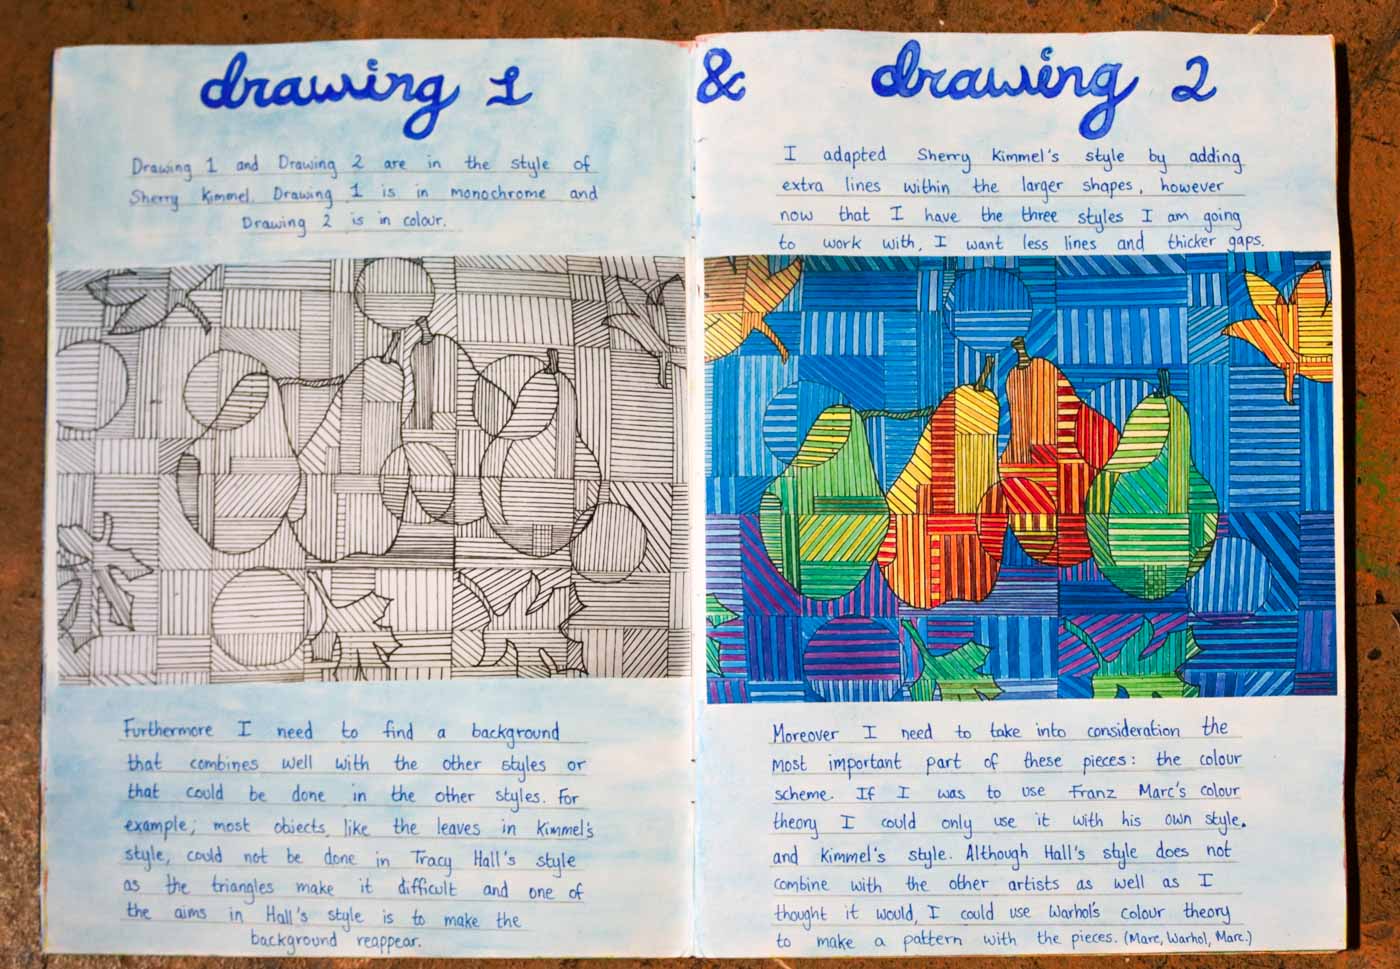 drawing 1 & drawing 2
Drawing 1 and Drawing 2 are in the style of
Sherry Kimmel. Drawing 1 is in monochrome and
Drawing 2 is in colour.
Furthermore I need to find a background
that combines well with the other styles or
that could be done in the other styles. For
example; most objects, like the leaves in Kimmel's
style, could not be done in Tracy Hall's style
as the triangles make it difficult and one of
the aims in Hall's style is to make the
background reappear.
I adapted Sherry Kimmel's style by adding
extra lines within the larger shapes, however
now that I have the three styles I am going
to work with, I want less lines and thicker gaps.
Moreover I need to take into consideration the
most important part of these pieces: the colour
scheme. If I was to use Franz Marc's colour
theory I could only use it with his own style.
and Kimmel's style. Although Hall's style does not
combine with the other artists as well as I
thought it would, I could use Warhol's colour theory
to make a pattern with the pieces. (Marc, Warhol, Marc.)